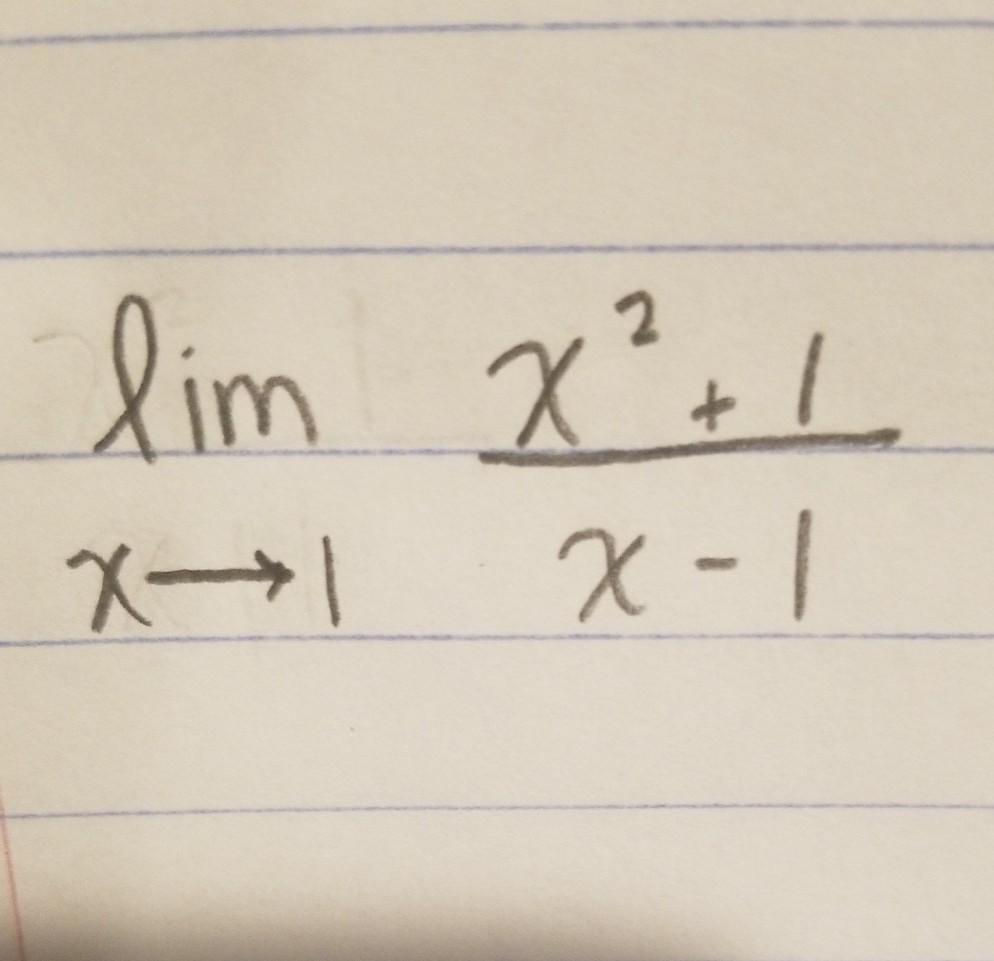 lim x² + 1
x→1 x - 1